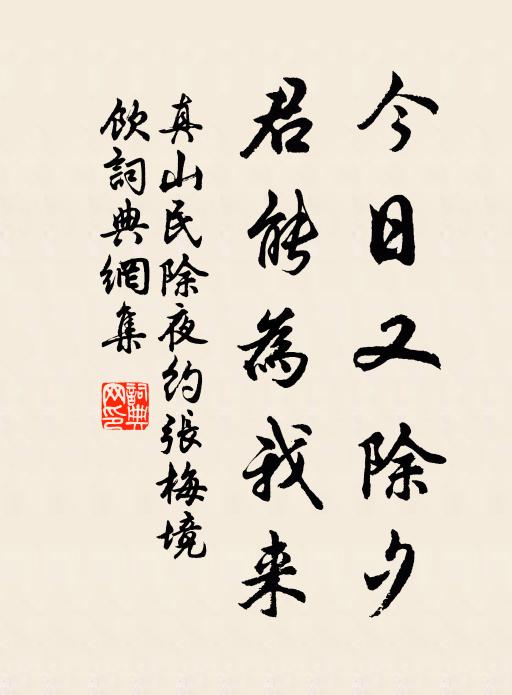 今日又除夕
君能為我来
真山民除夜约張梅境
飲詞典網集
詞典网印